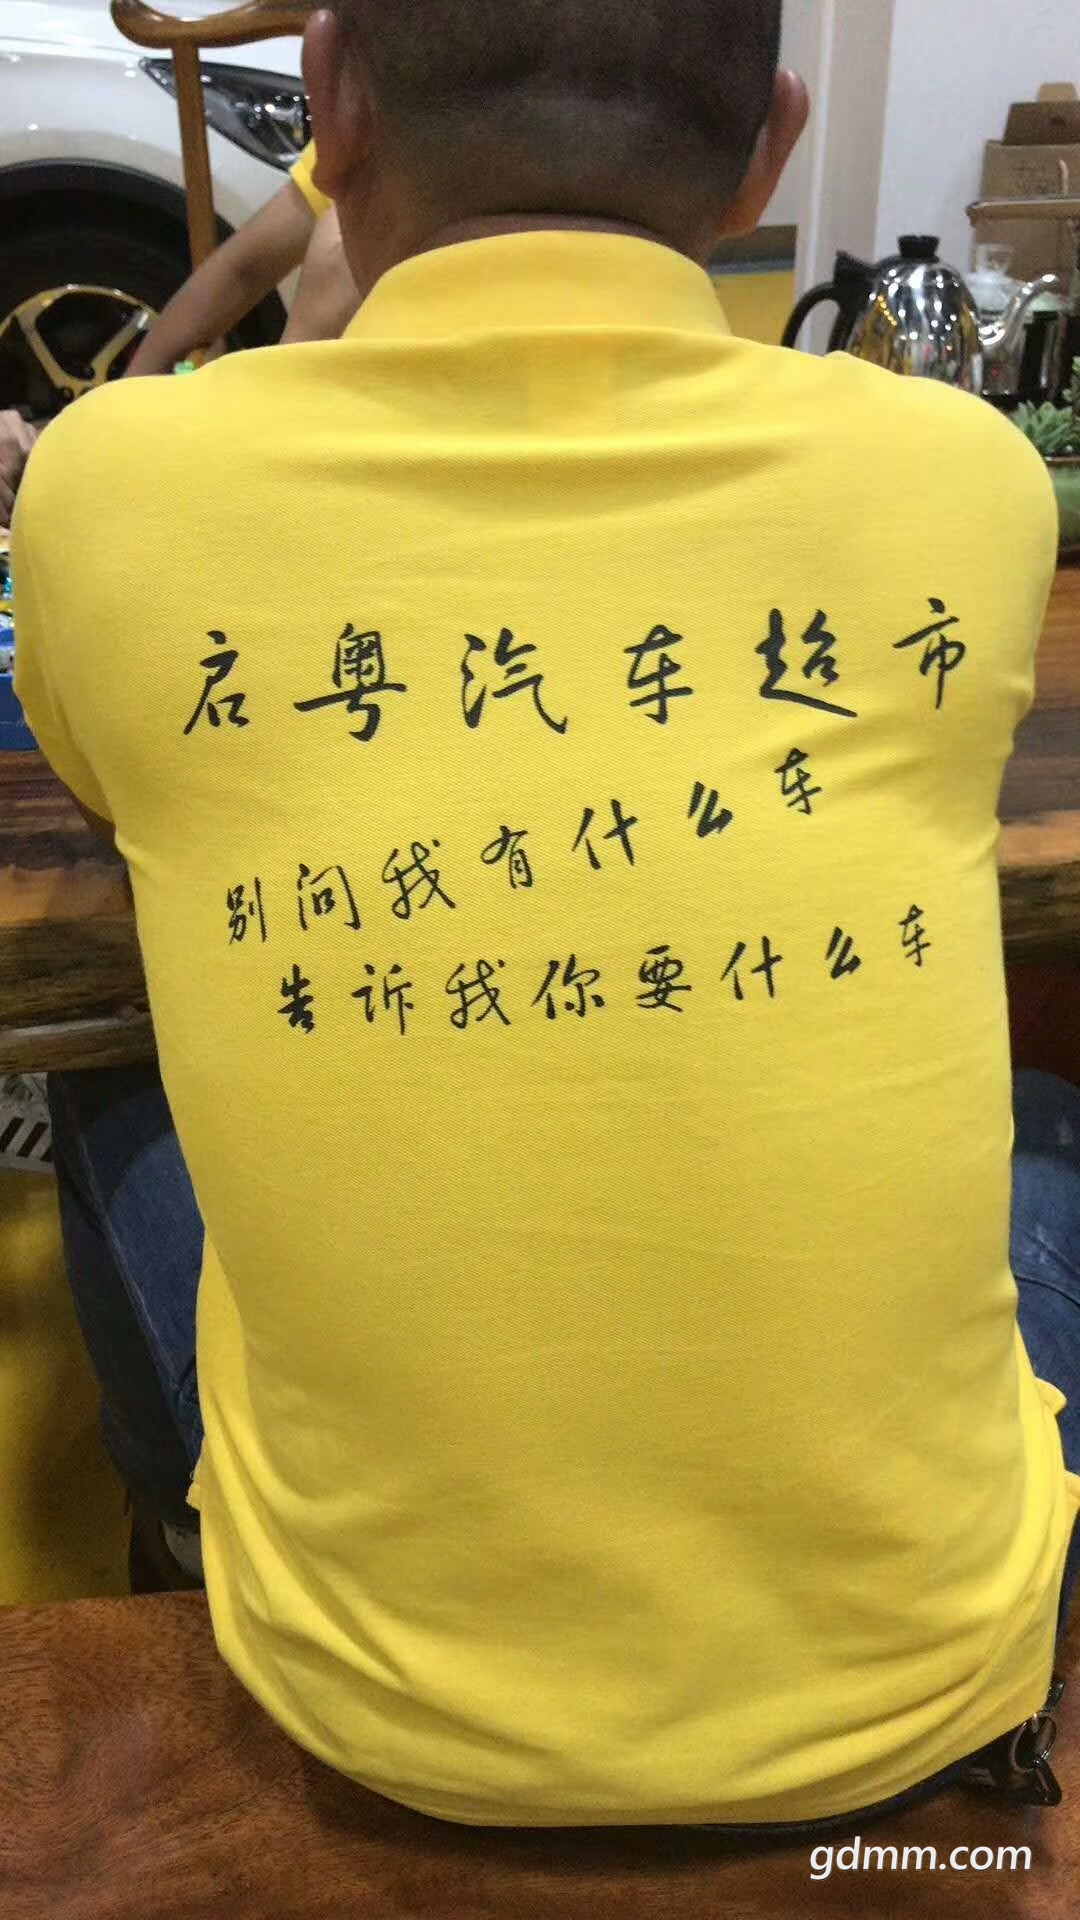 启粤汽车超市
别问我有什么车
告诉我你要什么车
gdmm.com